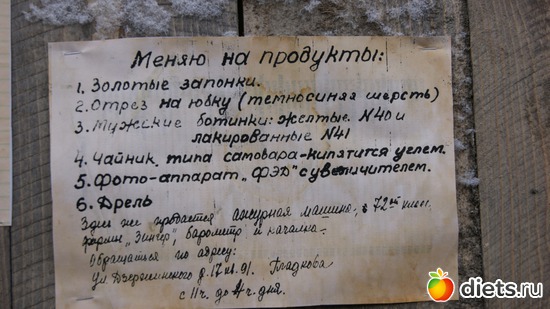 Меняю на продукты:
1. Золотые запонки.
2. Отрез на юбку (темносиняя шерсть)
3. Мужские ботинки: желтые N40 и
лакированные N41
4. Чайник типа самовара - кипятится углем.
5. Фото-аппарат "ФЭД" с увеличителем.
6. Дрель
Здесь же продается ажурная машина, 72ой класс
фирмы "Зингер", барометр и качалка.
Обращаться по адресу:
ул. Дзержинского д. 17 кв. 91. Гладкова
с 11 ч. до 4 ч. дня.
diets.ru